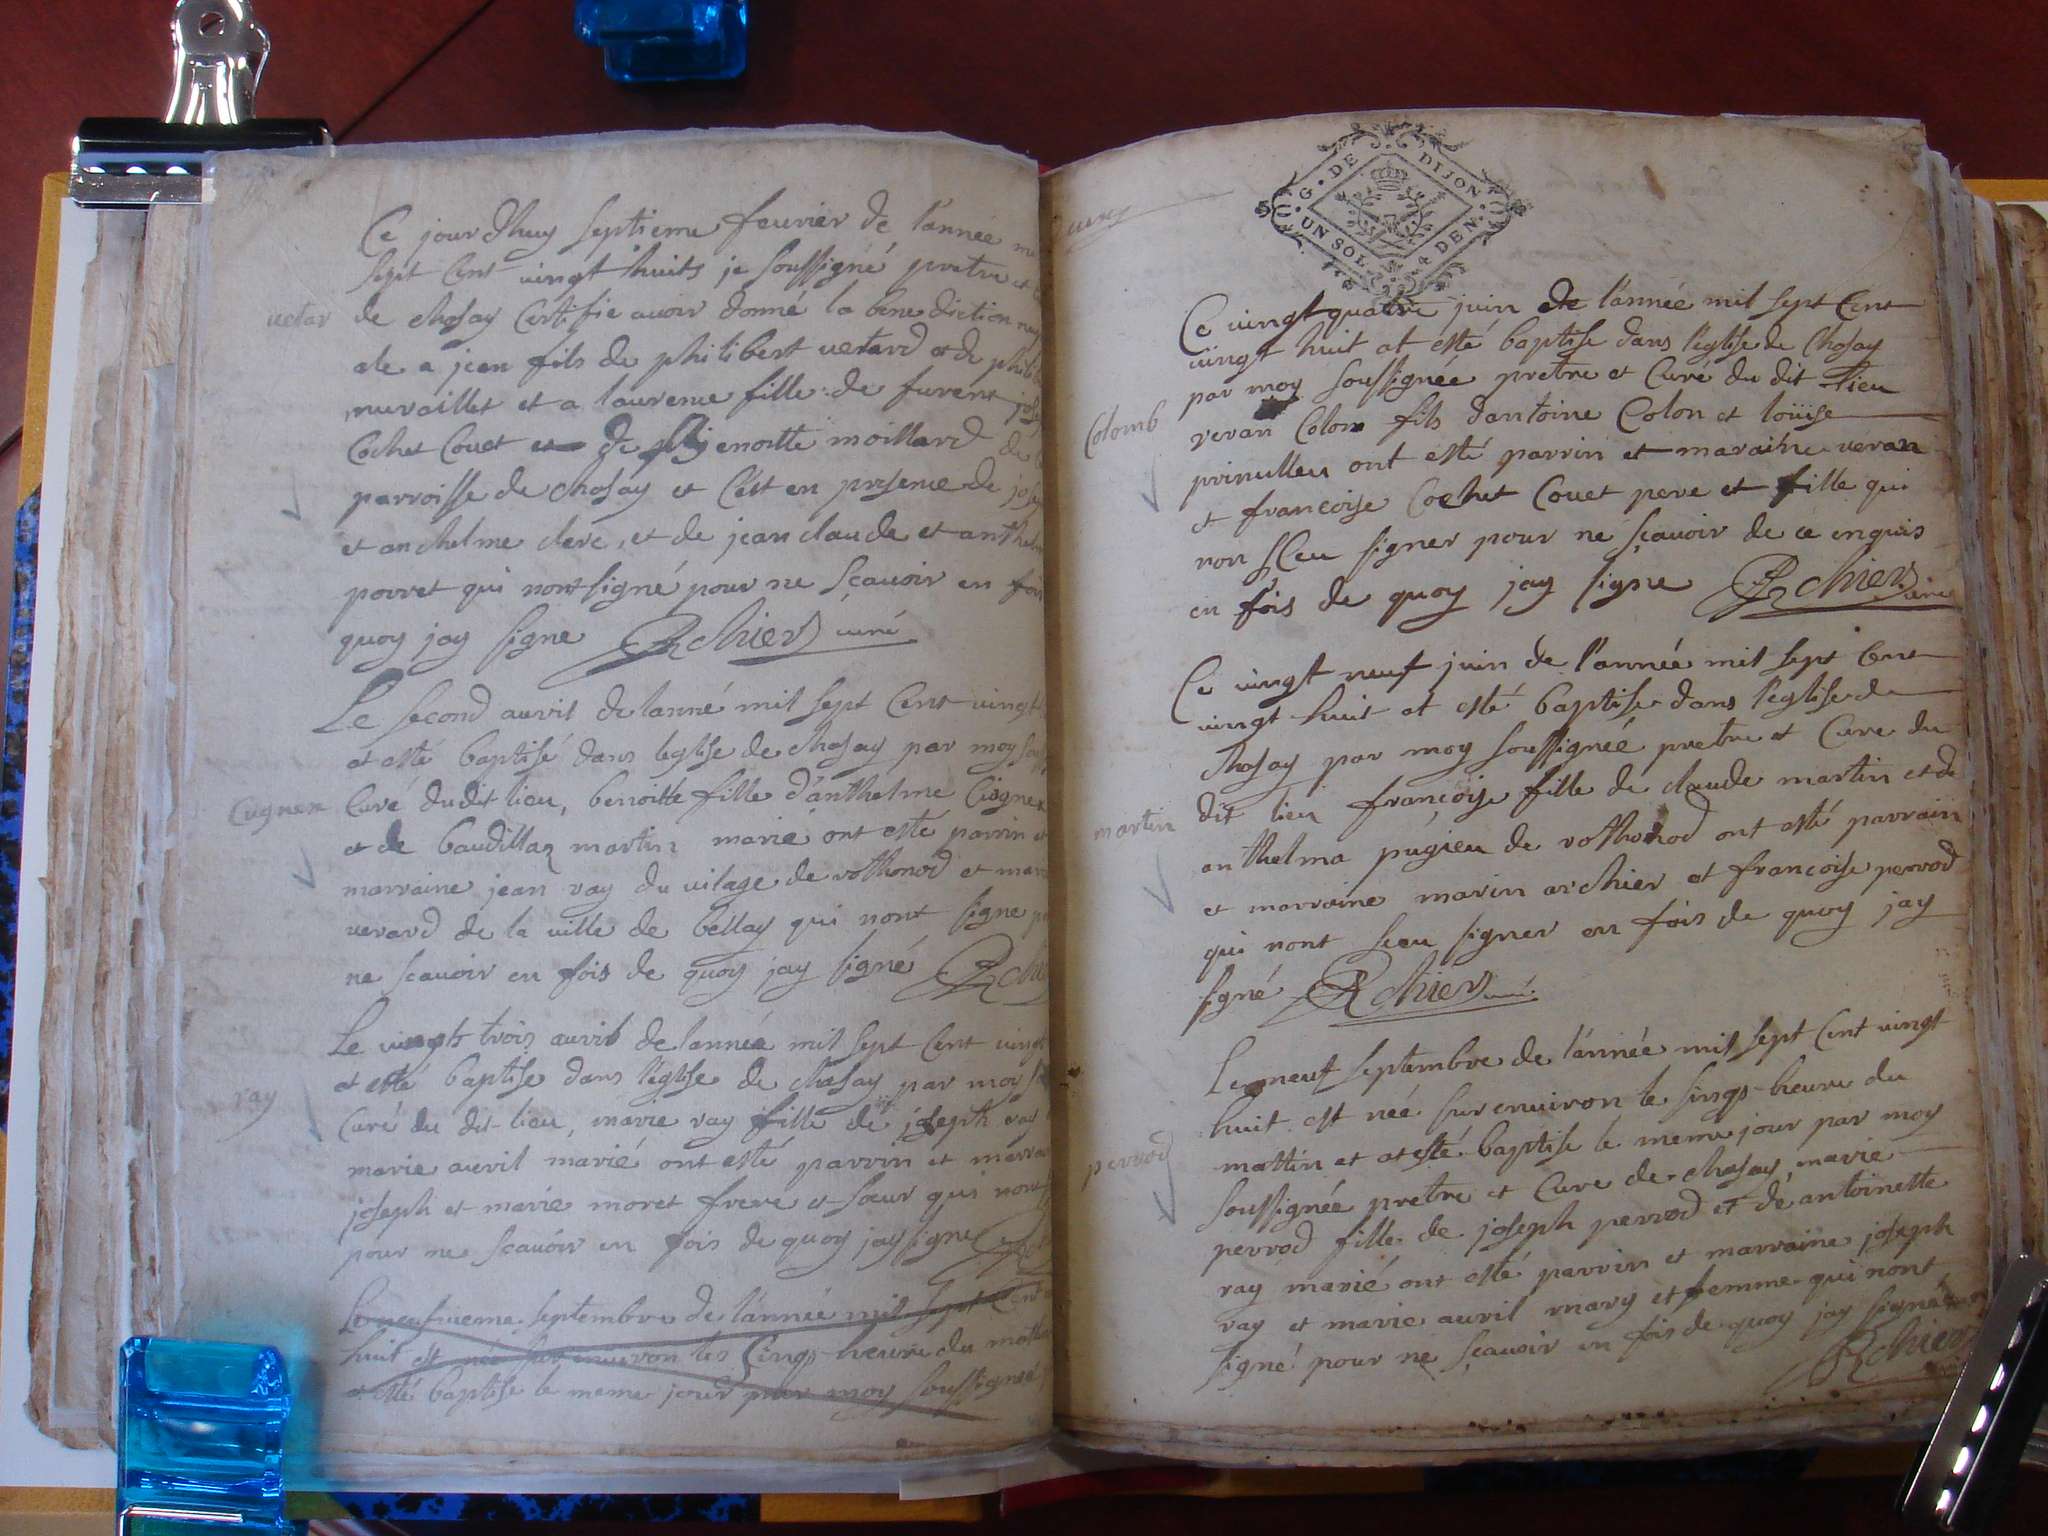 Ce jourdhuy septieme feurier de l'année
sept cent uingt huits je soussigné pretre et
uetar
de chosay Certifie auoir donné la bene diction
ale a jean fils de philibert uetard et de
nuraillet et a laurense fille de furent
Cochet Couet et de benoitte moillard
parroisse de chosay et Cést en presense de
et anthelme clerc, et de jean claude et
porret qui nont signé pour ne sçauoir en fois
quoy jay signe Rchier curé
Le second auril de lanné mil sept Cent uingt
at esté baptisé dans leglise de chosay par moy
Cugnex
Curé dudit lieu, benoitte fille d'anthelme
et de baudillaz martin marié ont esté parrin et
marraine jean ray du uilage de rothonod et
uerard de la uille de bellay qui nont signe
ne scauoir en fois de quoy jay signé
Le uingts trois auril de lannéé mil sept Cent uingt
at esté baptise dans leglise de chosay par moy
ray
Curé du dit-lieu, marie ray fille de joseph ray
marie auril marié ont esté parrin et
joseph et marie moret frere et soeur qui nont
pour ne sçauoir en fois de quoy jay signe
Le neufuieme septembre de lánnéé mil sept Cent
huit est née sur enuiron les Cinqs-heure du
at esté baptise le meme jour par moy soussigneé
G. DE DIJON
UN SOL 4 DEN.
Ce uingt quatre juin de lánnéé mil sept Cent
uingt huit at esté baptise dans léglise de Chosay
par moy soussignée pretre et Curé du dit lieu
Colomb
veran Colon fils dantoine Colon et loüise
ont esté parrin et maraine véran
et francoise Cochet Couet pere et fille qui
non sceu signer pour né sçauoir de cé enquis
en fois de quoy jay signe Rchier curé
Ce uingt neuf juin de l'année mil sept Cent
uingt huit at esté baptise dans léglise de
Chosay par moy soussignée pretre et Cure du
martin
dit lieu françoise fille de claude martin et de
anthelma pugieu de rothonod ont esté parrain
et marraine marin archier et francoise perrod
qui nont sceu signer en fois de quoy jay
signé Rchier curé
Le neuf septembre de lánnéé mil sept Cent uingt
huit est née sur enuiron le sinqs-heure du
mattin et at esté baptise le meme jour par moy
perrod
soussignée pretre et Cure de chosay marie
perrod fille de joseph perrod et de antoinette
ray marié ont esté parrin et marraine joseph
ray et marie auril mary et femme qui nont
signé pour ne sçauoir en fois de quoy jay signé
Rchier